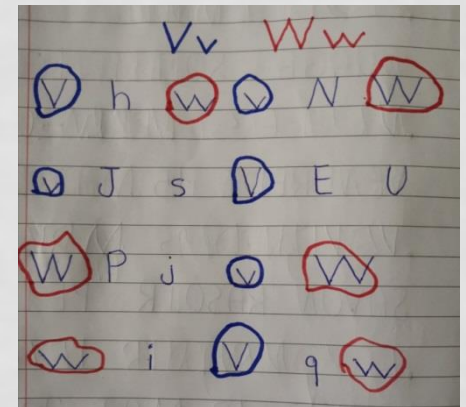 Vv Ww
V h w v N W
v J s V E U
W P j v W
w i V q w